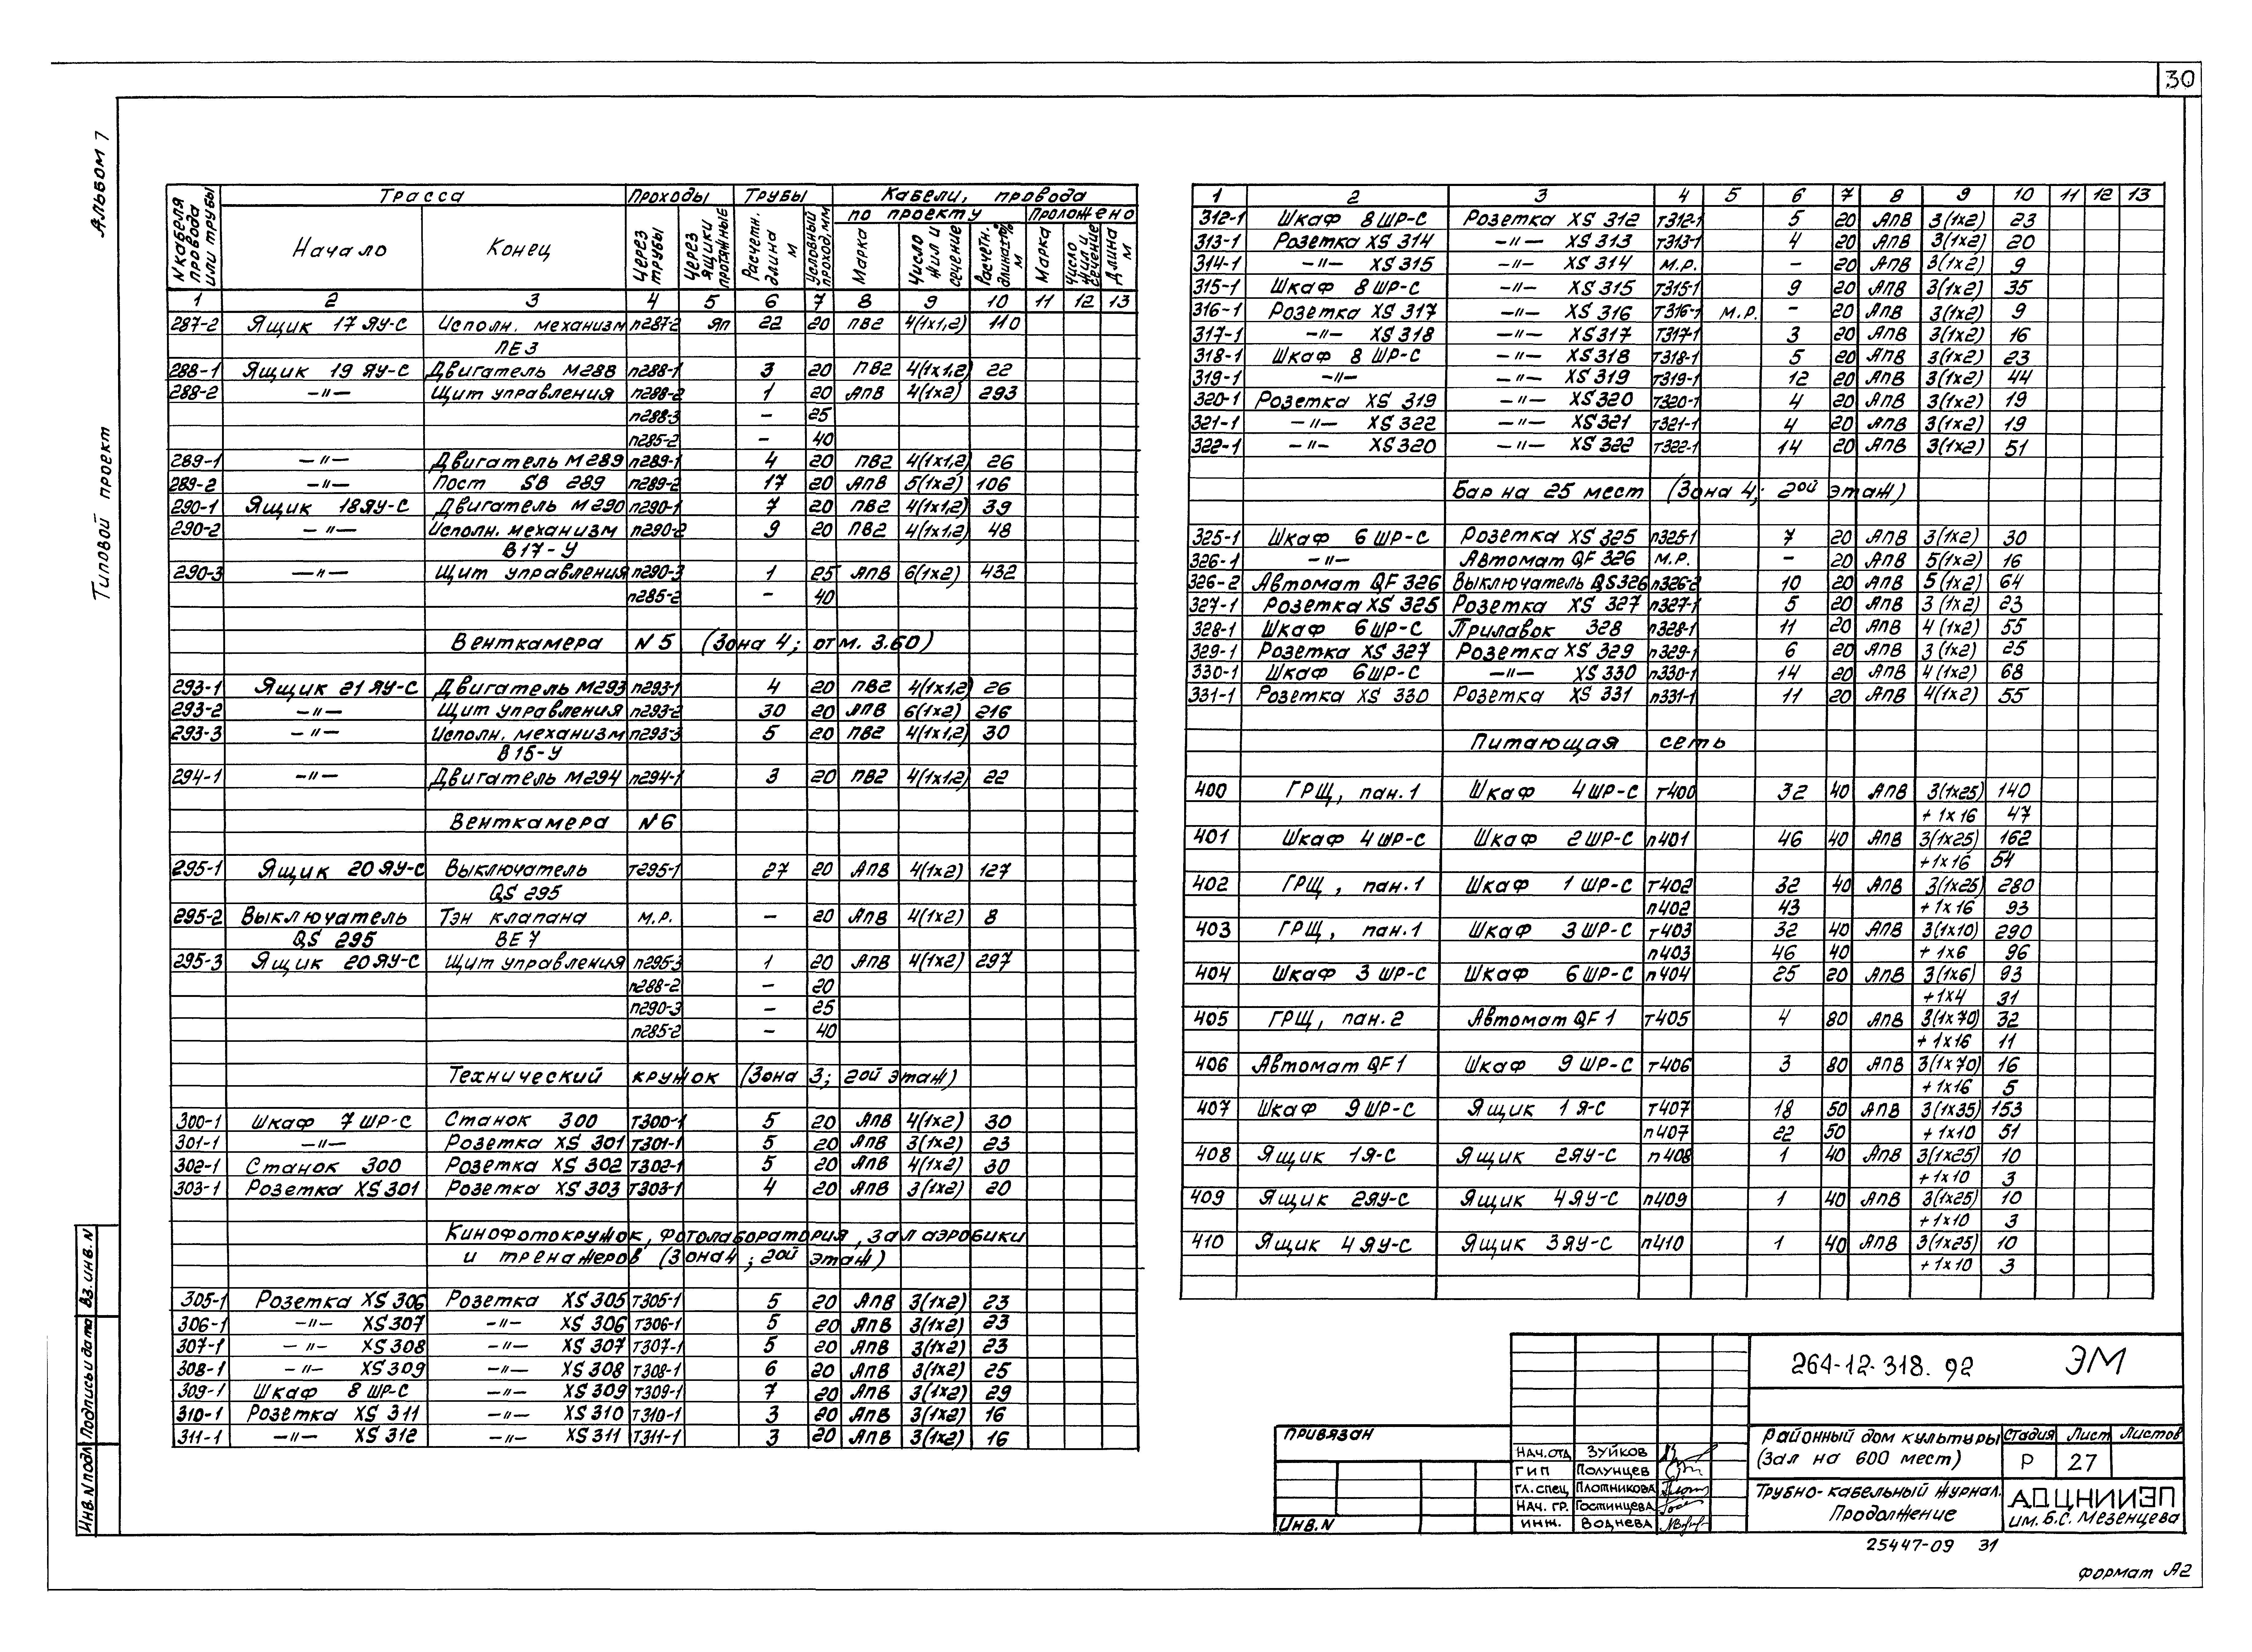 30
Альбом 7
Типовой проект
N кабеля провода или трубы | Трасса | Проходы | Трубы | Кабели, провода
по проекту | Проложено
Начало | Конец | Через трубы | Через ящики протяжные | Расчетн. длина м | Условный проход, мм | Марка | Число жил и сечение | Расчетн. длина м | Марка | Число жил и сечение | Длина м
1 2 3 4 5 6 7 8 9 10 11 12 13
287-2 Ящик 17 ЯУ-С Исполн. механизм п287-2 ЯП 22 20 ПВ2 4(1х1,2) 110
ПЕ3
288-1 Ящик 19 ЯУ-С Двигатель М288 п288-1 3 20 ПВ2 4(1х1,2) 22
288-2 —〃— Щит управления п288-2 1 20 АПВ 4(1х2) 293
п288-3 – 25
п285-2 – 40
289-1 —〃— Двигатель М289 п289-1 4 20 ПВ2 4(1х1,2) 26
289-2 —〃— Пост SB 289 п289-2 17 20 АПВ 5(1х2) 106
290-1 Ящик 18ЯУ-С Двигатель М290 п290-1 7 20 ПВ2 4(1х1,2) 39
290-2 —〃— Исполн. механизм п290-2 9 20 ПВ2 4(1х1,2) 48
В17-У
290-3 —〃— Щит управления п290-3 1 25 АПВ 6(1х2) 432
п285-2 – 40
Венткамера N 5 (Зона 4; отм. 3.60)
293-1 Ящик 21 ЯУ-С Двигатель М293 п293-1 4 20 ПВ2 4(1х1,2) 26
293-2 —〃— Щит управления п293-2 30 20 АПВ 6(1х2) 216
293-3 —〃— Исполн. механизм п293-3 5 20 ПВ2 4(1х1,2) 30
В15-У
294-1 —〃— Двигатель М294 п294-1 3 20 ПВ2 4(1х1,2) 22
Венткамера N 6
295-1 Ящик 20 ЯУ-С Выключатель т295-1 27 20 АПВ 4(1х2) 127
QS 295
295-2 Выключатель Тэн клапана м.р. – 20 АПВ 4(1х2) 8
QS 295 ВЕ 7
295-3 Ящик 20ЯУ-С Щит управления п295-3 1 20 АПВ 4(1х2) 297
п288-2 – 20
п290-3 – 25
п285-2 – 40
Технический кружок (Зона 3; 2ой этаж)
300-1 Шкаф 7 ШР-С Станок 300 т300-1 5 20 АПВ 4(1х2) 30
301-1 —〃— Розетка XS 301 т301-1 5 20 АПВ 3(1х2) 23
302-1 Станок 300 Розетка XS 302 т302-1 5 20 АПВ 4(1х2) 30
303-1 Розетка XS 301 Розетка XS 303 т303-1 4 20 АПВ 3(1х2) 20
Кинофотокружок, фотолаборатория, зал аэробики
и тренажеров (Зона 4; 2ой этаж)
305-1 Розетка XS 306 Розетка XS 305 т305-1 5 20 АПВ 3(1х2) 23
306-1 —〃— XS 307 —〃— XS 306 т306-1 5 20 АПВ 3(1х2) 23
307-1 —〃— XS 308 —〃— XS 307 т307-1 5 20 АПВ 3(1х2) 23
308-1 —〃— XS 309 —〃— XS 308 т308-1 6 20 АПВ 3(1х2) 25
309-1 Шкаф 8 ШР-С —〃— XS 309 т309-1 7 20 АПВ 3(1х2) 29
310-1 Розетка XS 311 —〃— XS 310 т310-1 3 20 АПВ 3(1х2) 16
311-1 —〃— XS 312 —〃— XS 311 т311-1 3 20 АПВ 3(1х2) 16
1 2 3 4 5 6 7 8 9 10 11 12 13
312-1 Шкаф 8 ШР-С Розетка XS 312 т312-1 5 20 АПВ 3(1х2) 23
313-1 Розетка XS 314 —〃— XS 313 т313-1 4 20 АПВ 3(1х2) 20
314-1 —〃— XS 315 —〃— XS 314 м.р. – 20 АПВ 3(1х2) 9
315-1 Шкаф 8 ШР-С —〃— XS 315 т315-1 9 20 АПВ 3(1х2) 35
316-1 Розетка XS 317 —〃— XS 316 т316-1 м.р. – 20 АПВ 3(1х2) 9
317-1 —〃— XS 318 —〃— XS 317 т317-1 3 20 АПВ 3(1х2) 16
318-1 Шкаф 8 ШР-С —〃— XS 318 т318-1 5 20 АПВ 3(1х2) 23
319-1 —〃— —〃— XS 319 т319-1 12 20 АПВ 3(1х2) 44
320-1 Розетка XS 319 —〃— XS 320 т320-1 4 20 АПВ 3(1х2) 19
321-1 —〃— XS 322 —〃— XS 321 т321-1 4 20 АПВ 3(1х2) 19
322-1 —〃— XS 320 —〃— XS 322 т322-1 14 20 АПВ 3(1х2) 51
Бар на 25 мест (Зона 4; 2ой этаж)
325-1 Шкаф 6 ШР-С Розетка XS 325 п325-1 7 20 АПВ 3(1х2) 30
326-1 —〃— Автомат QF 326 м.р. – 20 АПВ 5(1х2) 16
326-2 Автомат QF 326 Выключатель QS326 п326-2 10 20 АПВ 5(1х2) 64
327-1 Розетка XS 325 Розетка XS 327 п327-1 5 20 АПВ 3(1х2) 23
328-1 Шкаф 6 ШР-С Прилавок 328 п328-1 11 20 АПВ 4(1х2) 55
329-1 Розетка XS 327 Розетка XS 329 п329-1 6 20 АПВ 3(1х2) 25
330-1 Шкаф 6 ШР-С —〃— XS 330 п330-1 14 20 АПВ 4(1х2) 68
331-1 Розетка XS 330 Розетка XS 331 п331-1 11 20 АПВ 4(1х2) 55
Питающая сеть
400 ГРЩ, пан. 1 Шкаф 4 ШР-С т400 32 40 АПВ 3(1х25) 140
+1х16 47
401 Шкаф 4 ШР-С Шкаф 2 ШР-С п401 46 40 АПВ 3(1х25) 162
+1х16 54
402 ГРЩ, пан. 1 Шкаф 1 ШР-С т402 32 40 АПВ 3(1х25) 280
п402 43 +1х16 93
403 ГРЩ, пан. 1 Шкаф 3 ШР-С т403 32 40 АПВ 3(1х10) 290
п403 46 40 +1х6 96
404 Шкаф 3 ШР-С Шкаф 6 ШР-С п404 25 20 АПВ 3(1х6) 93
+1х4 31
405 ГРЩ, пан. 2 Автомат QF 1 т405 4 80 АПВ 3(1х70) 32
+1х16 11
406 Автомат QF 1 Шкаф 9 ШР-С т406 3 80 АПВ 3(1х70) 16
+1х16 5
407 Шкаф 9 ШР-С Ящик 1 Я-С т407 18 50 АПВ 3(1х35) 153
п407 22 50 +1х10 51
408 Ящик 1Я-С Ящик 2ЯУ-С п408 1 40 АПВ 3(1х25) 10
+1х10 3
409 Ящик 2ЯУ-С Ящик 4 ЯУ-С п409 1 40 АПВ 3(1х25) 10
+1х10 3
410 Ящик 4 ЯУ-С Ящик 3 ЯУ-С п410 1 40 АПВ 3(1х25) 10
+1х10 3
264-12-318.92 ЭМ
Привязан
Инв. N
Нач. отд. Зуйков
ГИП Полунцев
Гл. спец. Плотникова
Нач. гр. Гостинцева
Инж. Воднева
Районный дом культуры
(зал на 600 мест)
Стадия Лист Листов
Р 27
Трубно-кабельный журнал.
Продолжение
АДЦНИИЭП
им. Б.С. Мезенцева
25447-09 31
формат А2
Инв. N подл. Подпись и дата Вз. инв. N